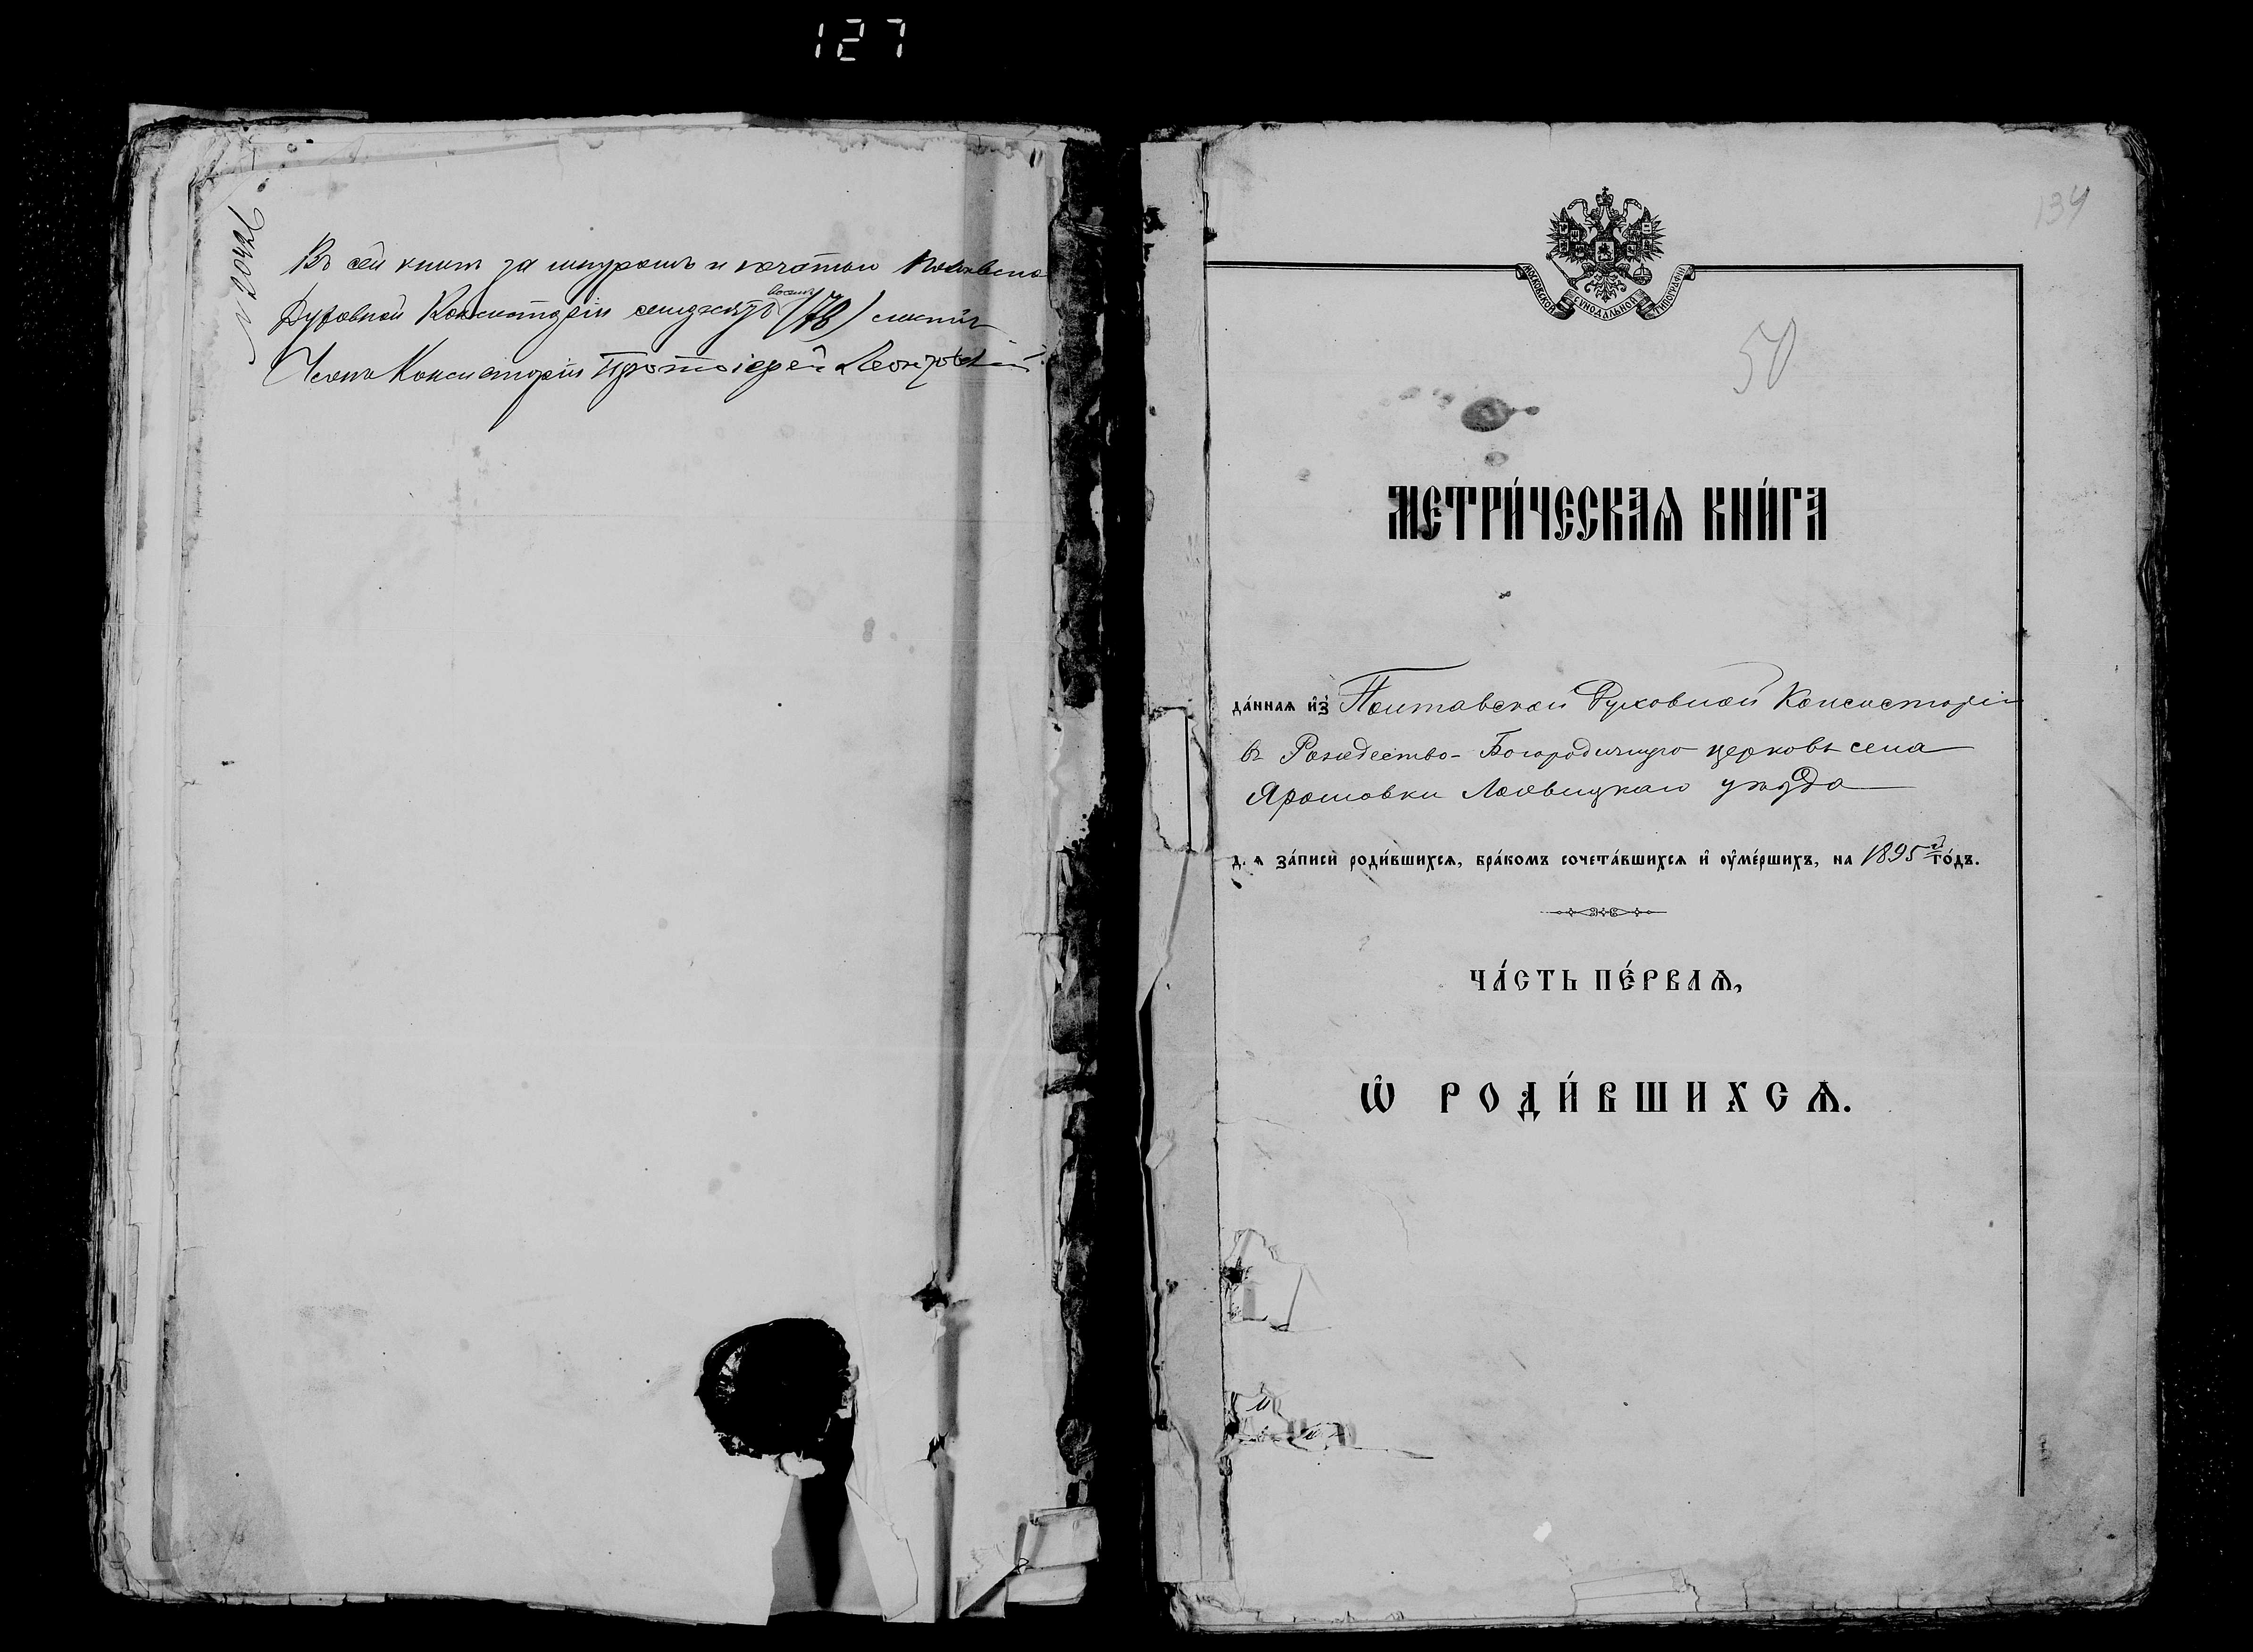 127
№ 20426
Въ сей книгѣ за шнуромъ и печатью Полтавской
Духовной Консисторіи семьдесятъ восемь (78) листовъ
Членъ Консисторіи Протоіерей
134
МОСКОВСКОЙ СѴНОДАЛЬНОЙ ТИПОГРАФІИ
50
МЕТРИ́ЧЕСКАѦ КНИ́ГА
да́ннаѧ и҆з̾ Полтавской Духовной Консисторіи
въ Рождество-Богородичную церковь села
Ярошовки Лохвицкаго уѣзда
д. ѧ за́писи роди́вшихсѧ, бра́комъ сочета́вшихсѧ и҆ ᲂу҆ме́ршихъ, на 1895 й го́дъ.
ЧА́СТЬ ПЕ́РВАѦ,
Ѽ РОДИ́ВШИХСѦ.